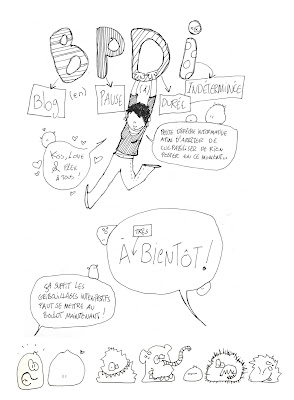 BPDI
Blog (en) PAUSE (à) DURÉE INDÉTERMINÉE
KISS, LOVE
& PÉPÉ
À TOUS!
PETITE DÉPÊCHE INFORMATIVE
AFIN D'ARRÊTER DE
CULPABILISER DE RIEN
POSTER EN CE MOMENT...
TRÈS
À BIENTÔT!
ÇA SUFFIT LES
GRIBOUILLAGES INTEMPESTIFS
FAUT SE METTRE AU
BOULOT MAINTENANT!